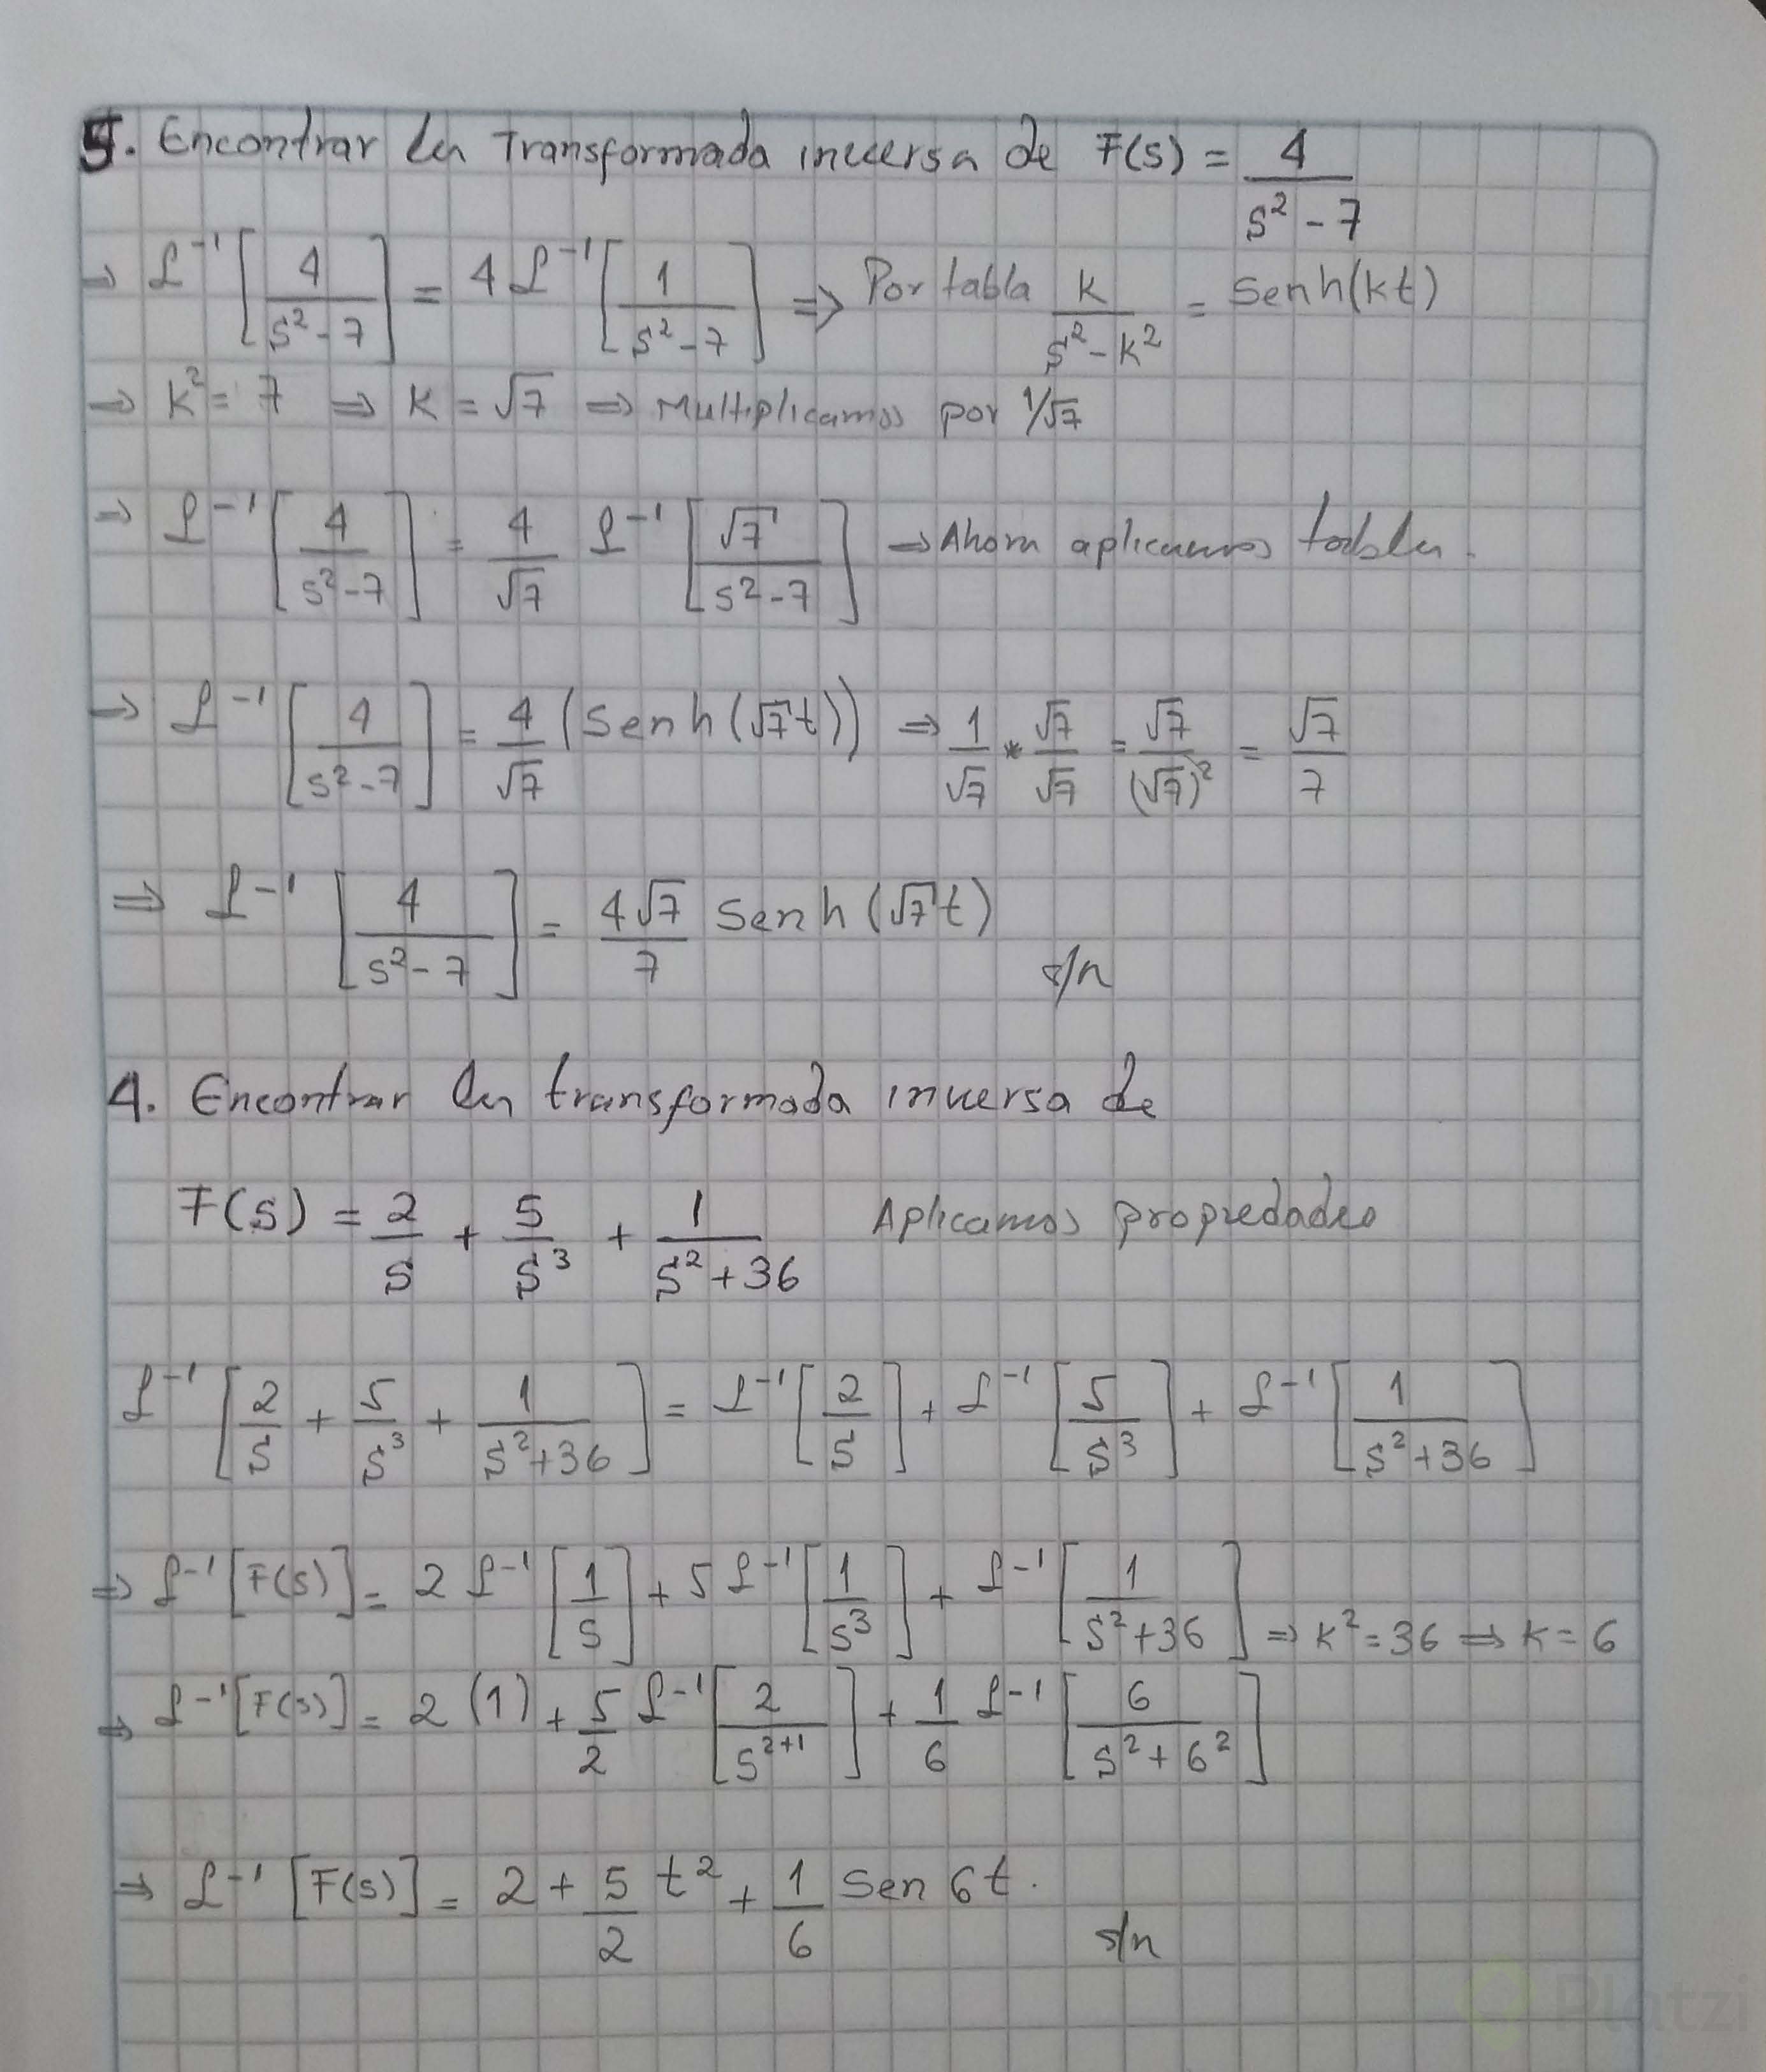 5. Encontrar la Transformada inversa de F(s) = 4/(s² - 7)
⇒ ℒ⁻¹[4/(s² - 7)] = 4 ℒ⁻¹[1/(s² - 7)] ⇒ Por tabla k/(s² - k²) = Senh(kt)
⇒ k² = 7 ⇒ k = √7 ⇒ Multiplicamos por 1/√7
⇒ ℒ⁻¹[4/(s² - 7)] = 4/√7 ℒ⁻¹[√7/(s² - 7)] ⇒ Ahora aplicamos tabla.
⇒ ℒ⁻¹[4/(s² - 7)] = 4/√7 (Senh(√7t)) ⇒ 1/√7 * √7/√7 = √7/(√7)² = √7/7
⇒ ℒ⁻¹[4/(s² - 7)] = 4√7/7 Senh(√7t)
s/n
4. Encontrar la transformada inversa de
F(s) = 2/s + 5/s³ + 1/(s² + 36) Aplicamos propiedades
ℒ⁻¹[2/s + 5/s³ + 1/(s² + 36)] = ℒ⁻¹[2/s] + ℒ⁻¹[5/s³] + ℒ⁻¹[1/(s² + 36)]
⇒ ℒ⁻¹[F(s)] = 2 ℒ⁻¹[1/s] + 5 ℒ⁻¹[1/s³] + ℒ⁻¹[1/(s² + 36)] ⇒ k² = 36 ⇒ k = 6
⇒ ℒ⁻¹[F(s)] = 2 (1) + 5/2 ℒ⁻¹[2/s²⁺¹] + 1/6 ℒ⁻¹[6/(s² + 6²)]
⇒ ℒ⁻¹[F(s)] = 2 + 5/2 t² + 1/6 Sen 6t.
s/n
Platzi